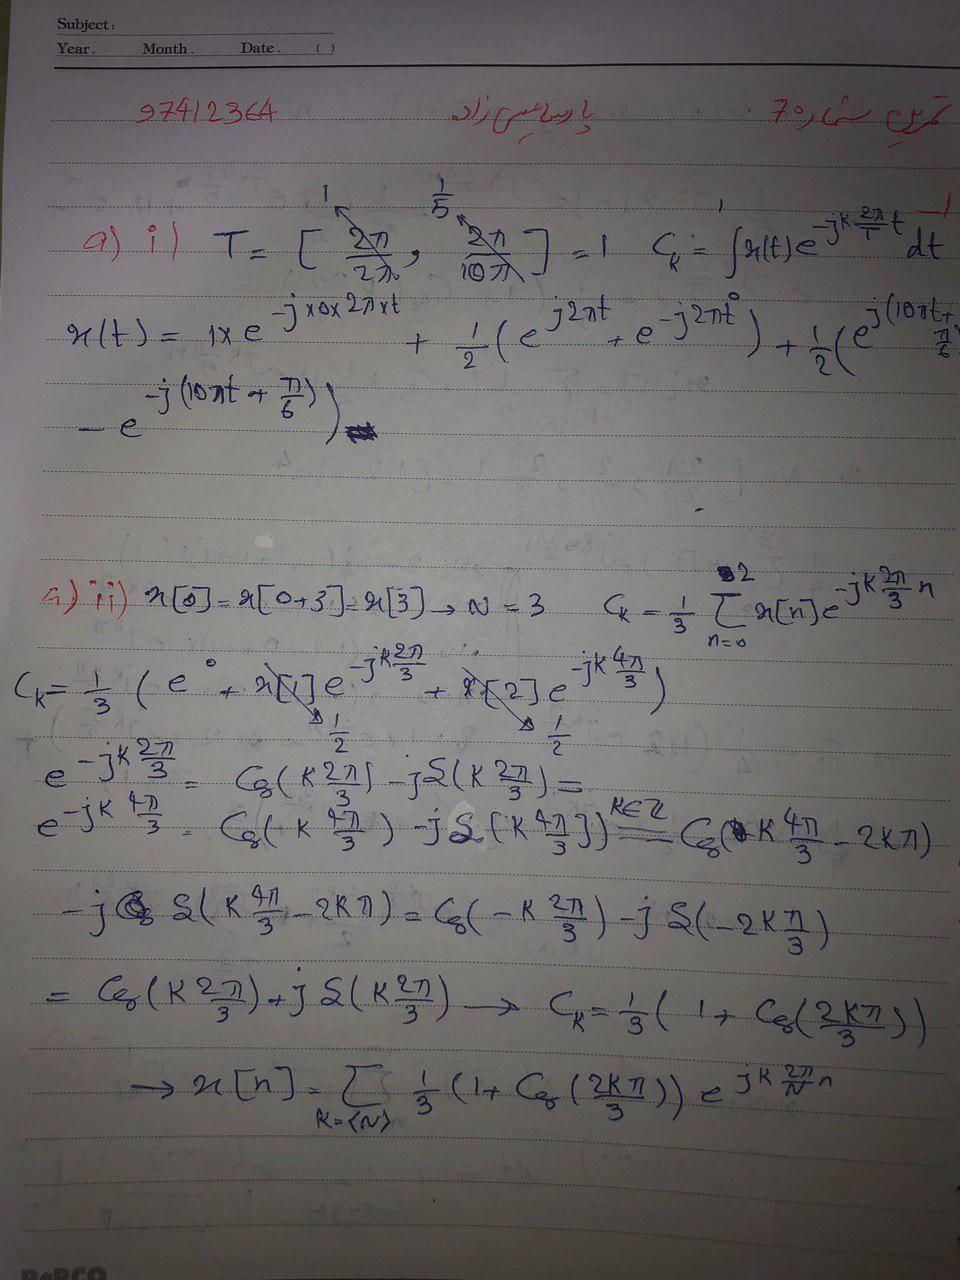 Subject:
Year. Month. Date. ( )
تمرین سری 70 97412364
-1
a) i) T = [ 2π/2π → 1 , 2π/10π → 1/5 ] = 1 C_k = ∫ x(t) e^{-jk 2π/1 t} dt
x(t) = 1 × e^{-j×0×2π×t} + 1/2 ( e^{j2πt} + e^{-j2πt} ) + 1/2 ( e^{j(10πt + π/6)}
- e^{-j(10πt + π/6)} )
a) ii) x[0] = x[0+3] = x[3] → N = 3 C_k = 1/3 Σ_{n=0}^{2} x[n] e^{-jk 2π/3 n}
C_k = 1/3 ( e^0 + x[1] e^{-jk 2π/3} + x[2] e^{-jk 4π/3} )
1/2 1/2
e^{-jk 2π/3} = Cos(k 2π/3) - j S(k 2π/3) =
e^{-jk 4π/3} = Cos(k 4π/3) - j S(k 4π/3) =^{k∈Z} Cos(k 4π/3 - 2kπ)
- j S(k 4π/3 - 2kπ) = Cos(-k 2π/3) - j S(-2kπ/3)
= Cos(k 2π/3) + j S(k 2π/3) → C_k = 1/3 ( 1 + Cos(2kπ/3) )
→ x[n] = Σ_{k=⟨N⟩} 1/3 ( 1 + Cos(2kπ/3) ) e^{jk 2π/N n}